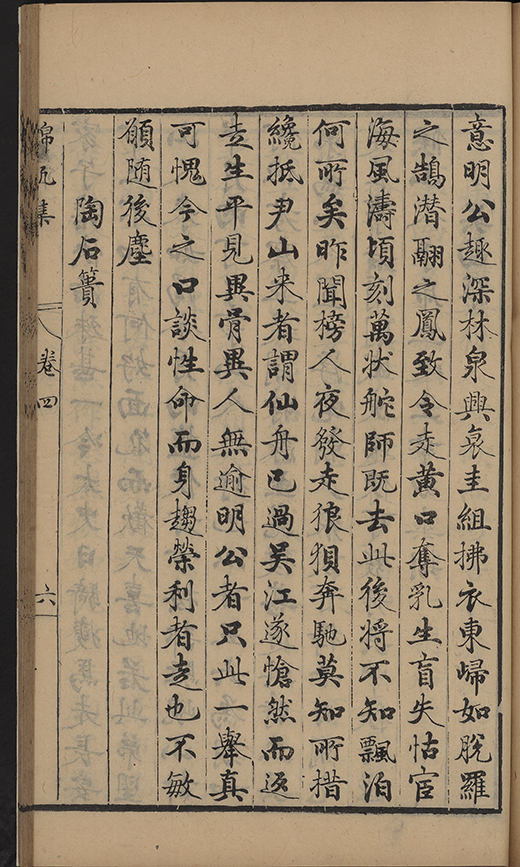 意明公趣深林泉興哀圭組拂衣東歸如脫羅
之鵠潜翮之鳳致令走黄口奪乳生盲失怙宦
海風濤頃刻萬狀舵師既去此後将不知飄泊
何所矣昨聞榜人夜發走狼狽奔馳莫知所措
纔抵尹山来者謂仙舟已過吴江遂愴然而返
走生平見異骨異人無逾明公者只此一舉真
可愧今之口談性命而身趨榮利者走也不敏
願随後塵
陶石簣
錦帆集 卷四 六